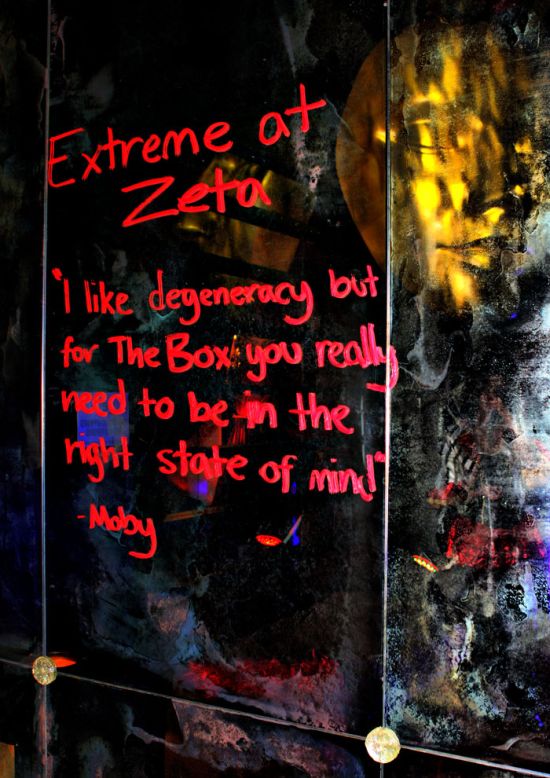 Extreme at
Zeta
"I like degeneracy but
for The Box you really
need to be in the
right state of mind"
-Moby